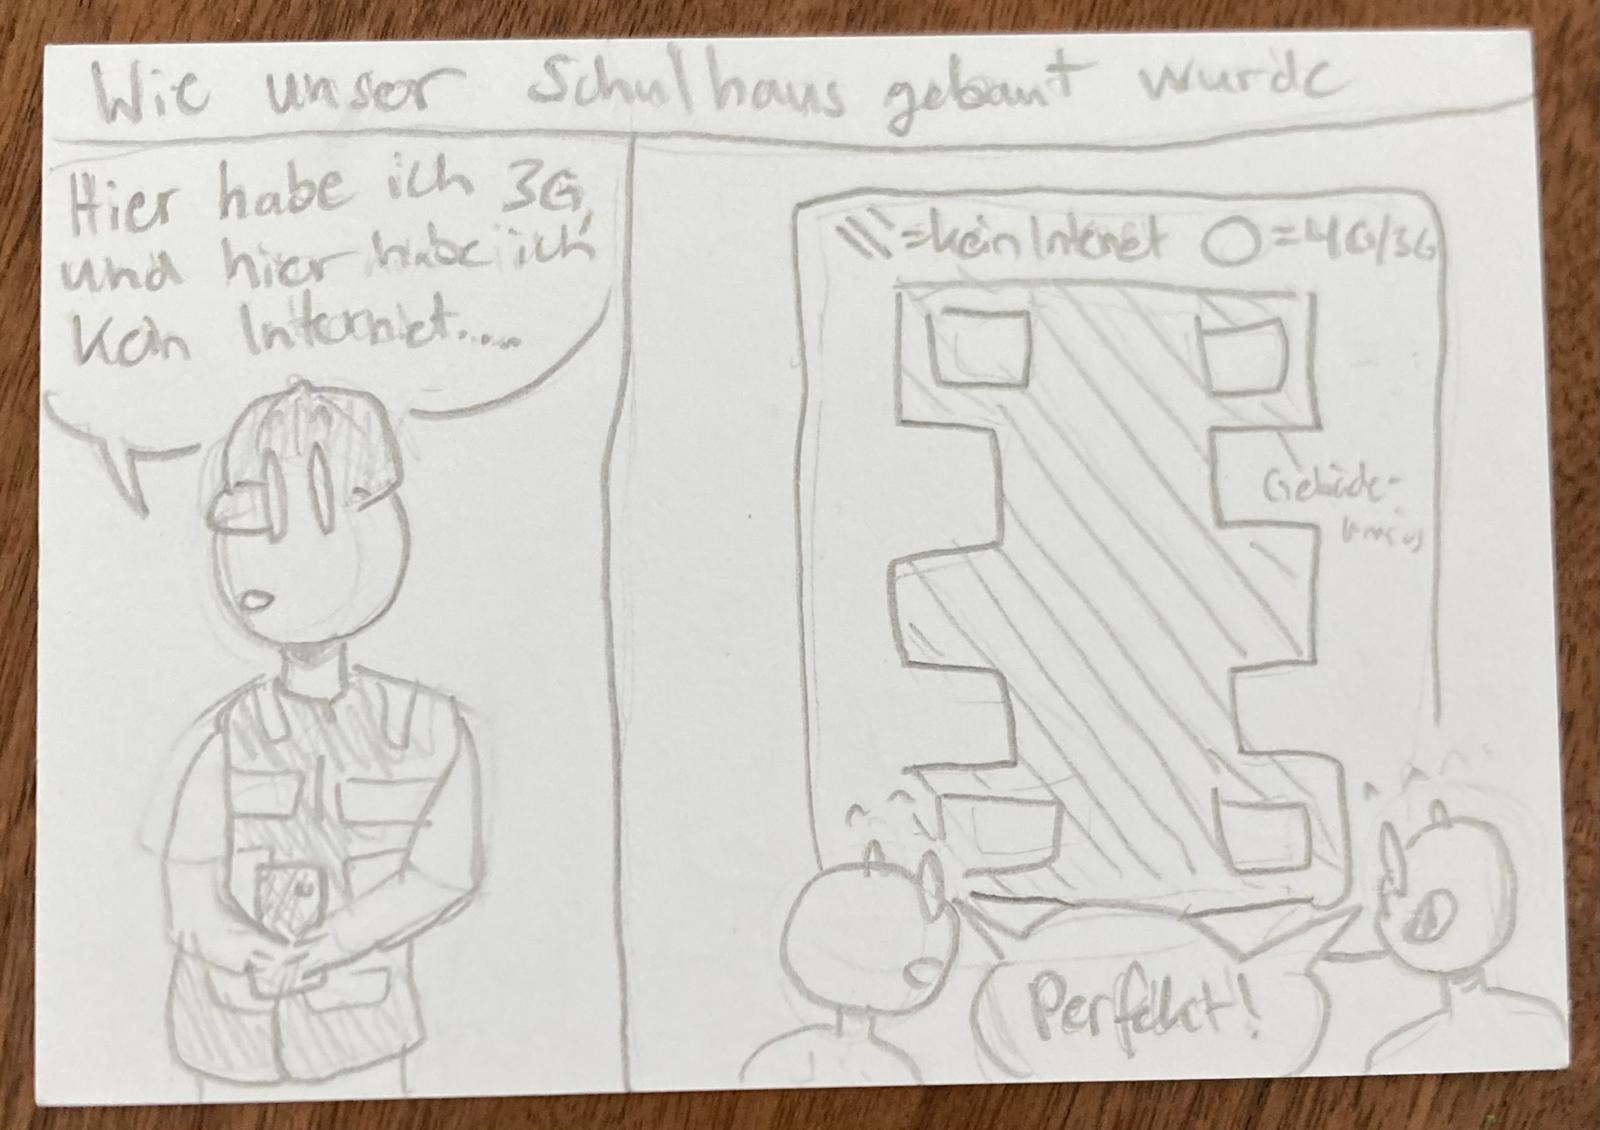 Wie unser Schulhaus gebaut wurde
Hier habe ich 3G,
und hier habe ich
Kein Internet.....
=kein Internet O=4G/3G
Gebäude-
Perfekt!